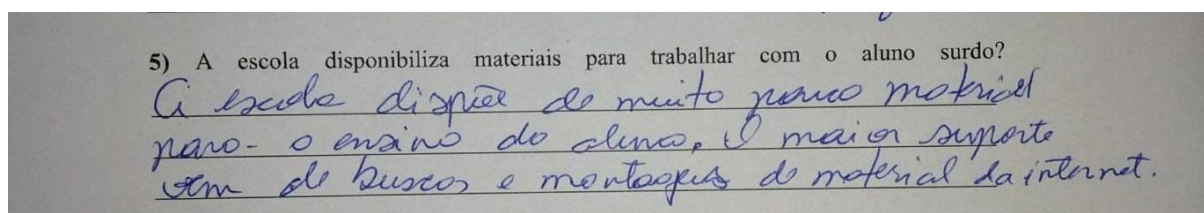 5) A escola disponibiliza materiais para trabalhar com o aluno surdo?
A escola dispõe de muito pouco material
para o ensino do aluno. O maior suporte
vem de buscas e montagens do material da internet.